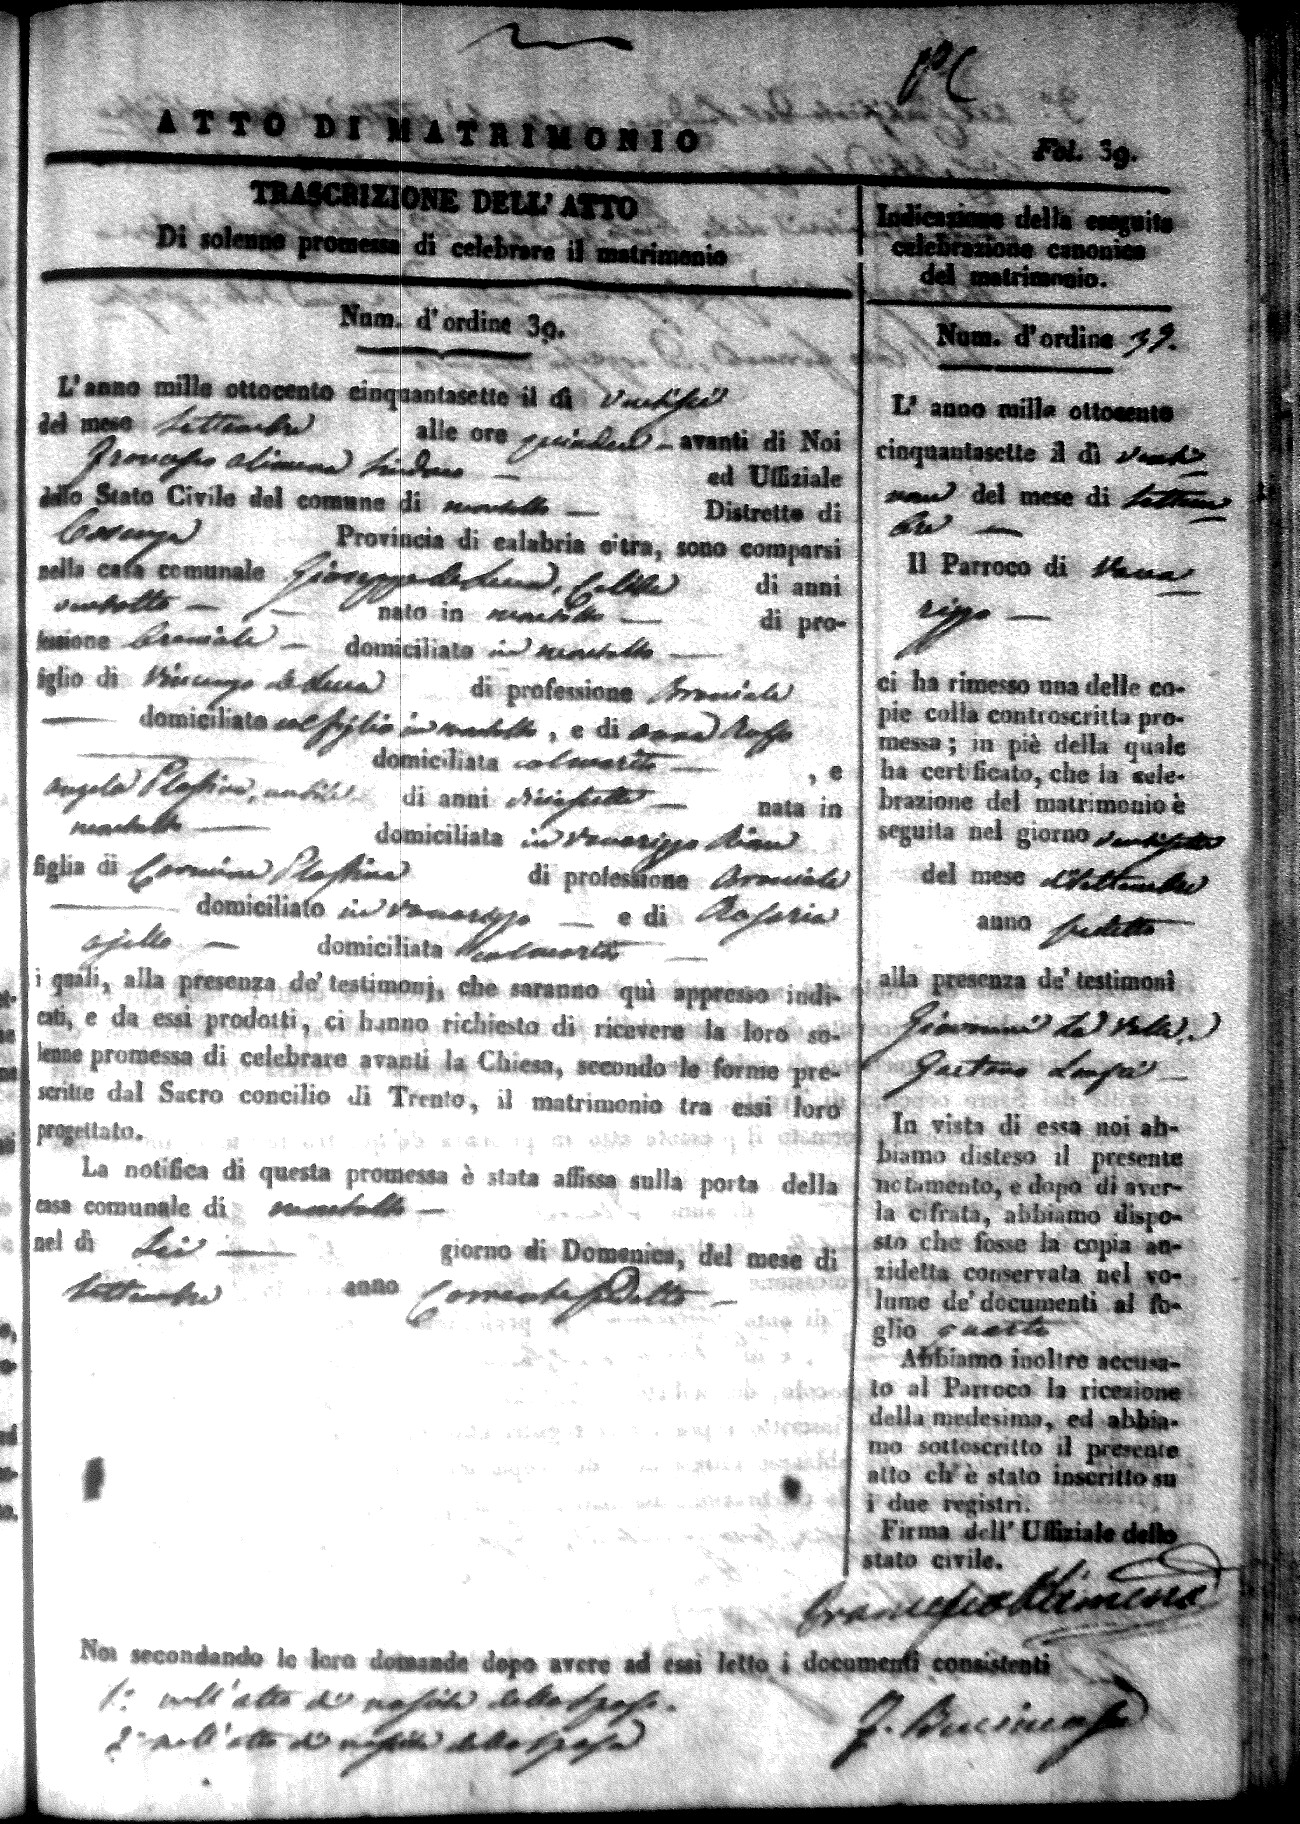 ATTO DI MATRIMONIO
Fol. 39.
TRASCRIZIONE DELL' ATTO
Di solenne promessa di celebrare il matrimonio
Num. d'ordine 39.
L'anno mille ottocento cinquantasette il dì ventisei
del mese Settembre alle ore quindici - avanti di Noi
Francesco Alimena Sindaco — ed Uffiziale
dello Stato Civile del comune di montalto — Distretto di
Cosenza Provincia di calabria citra, sono comparsi
nella casa comunale Giuseppe de Luca, Celibe di anni
ventotto — — nato in montalto — di pro-
fessione Bracciale — domiciliato in montalto —
figlio di Vincenzo de Luca di professione Bracciale
— domiciliato col figlio in montalto, e di anna Russo
— domiciliata col marito — , e
angela Plastina, nubile di anni diciassette — nata in
montalto — domiciliata in vaccarizzo
figlia di Carmine Plastina di professione Bracciale
— domiciliato in vaccarizzo — e di Rosaria
ajello — domiciliata col marito —
i quali, alla presenza de' testimonj, che saranno quì appresso indi-
cati, e da essi prodotti, ci hanno richiesto di ricevere la loro so-
lenne promessa di celebrare avanti la Chiesa, secondo le forme pre-
scritte dal Sacro concilio di Trento, il matrimonio tra essi loro
progettato.
La notifica di questa promessa è stata affissa sulla porta della
casa comunale di montalto —
nel dì Sei — giorno di Domenica, del mese di
Settembre anno Corrente —
Indicazione della eseguita
celebrazione canonica
del matrimonio.
Num. d'ordine 39.
L' anno mille ottocento
cinquantasette il dì venti
nove del mese di Settem
bre —
Il Parroco di Vacca
rizzo —
ci ha rimesso una delle co-
pie colla controscritta pro-
messa; in piè della quale
ha certificato, che la cele-
brazione del matrimonio è
seguita nel giorno ventisette
del mese di Settembre
anno sudetto
alla presenza de' testimoni
Giovanni La Valle, e
Gaetano —
In vista di essa noi ab-
biamo disteso il presente
notamento, e dopo di aver-
la cifrata, abbiamo dispo-
sto che fosse la copia an-
zidetta conservata nel vo-
lume de' documenti al fo-
glio quarto
Abbiamo inoltre accusa-
to al Parroco la ricezione
della medesima, ed abbia-
mo sottoscritto il presente
atto ch' è stato inscritto su
i due registri.
Firma dell' Uffiziale dello
stato civile.
Francesco Alimena
Noi secondando le loro domande dopo avere ad essi letto i documenti consistenti
1.° nell'atto di nascita dello sposo.
2.° nell'atto di nascita della sposa